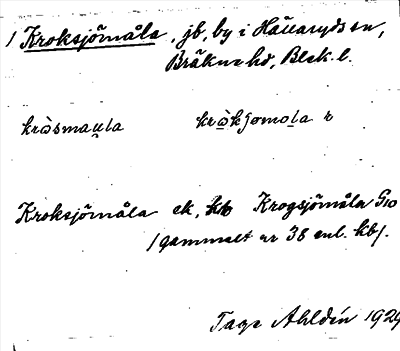 1 Kroksjömåla, jb, by i Hällaryds sn,
Bräkne hd, Blek. l.
kròsmau̯la kròkʃomola r
Kroksjömåla ek, kb Krogsjömåla G10
/gammalt nr 38 enl. kb/.
Tage Ahldén 1929